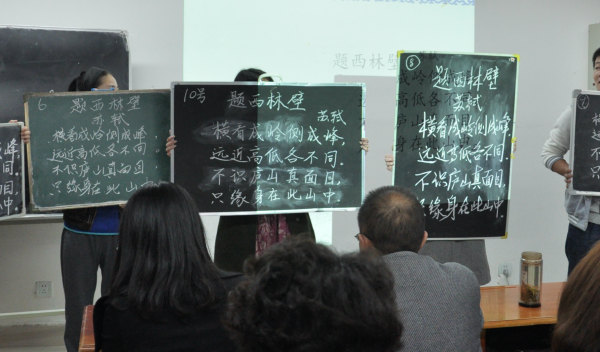 峰
同
目
中
6 题西林壁
苏轼
横看成岭侧成峰,
远近高低各不同.
不识庐山真面目,
只缘身在此山中.
10号 题西林壁
苏轼
横看成岭侧成峰,
远近高低各不同.
不识庐山真面目,
只缘身在此山中.
题西林壁
8
题西林壁
苏轼
横看成岭侧成峰,
远近高低各不同.
不识庐山真面目,
只缘身在此山中.